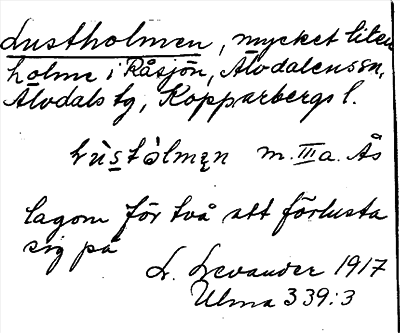 Lustholmen, mycket liten
holme i Råsjön, Älvdalens sn,
Älvdals tg, Kopparbergs l.
Lùstòlmęn m. III a. Ås
lagom för två att förlusta
sig på
L. Levander 1917
Ulma 339:3